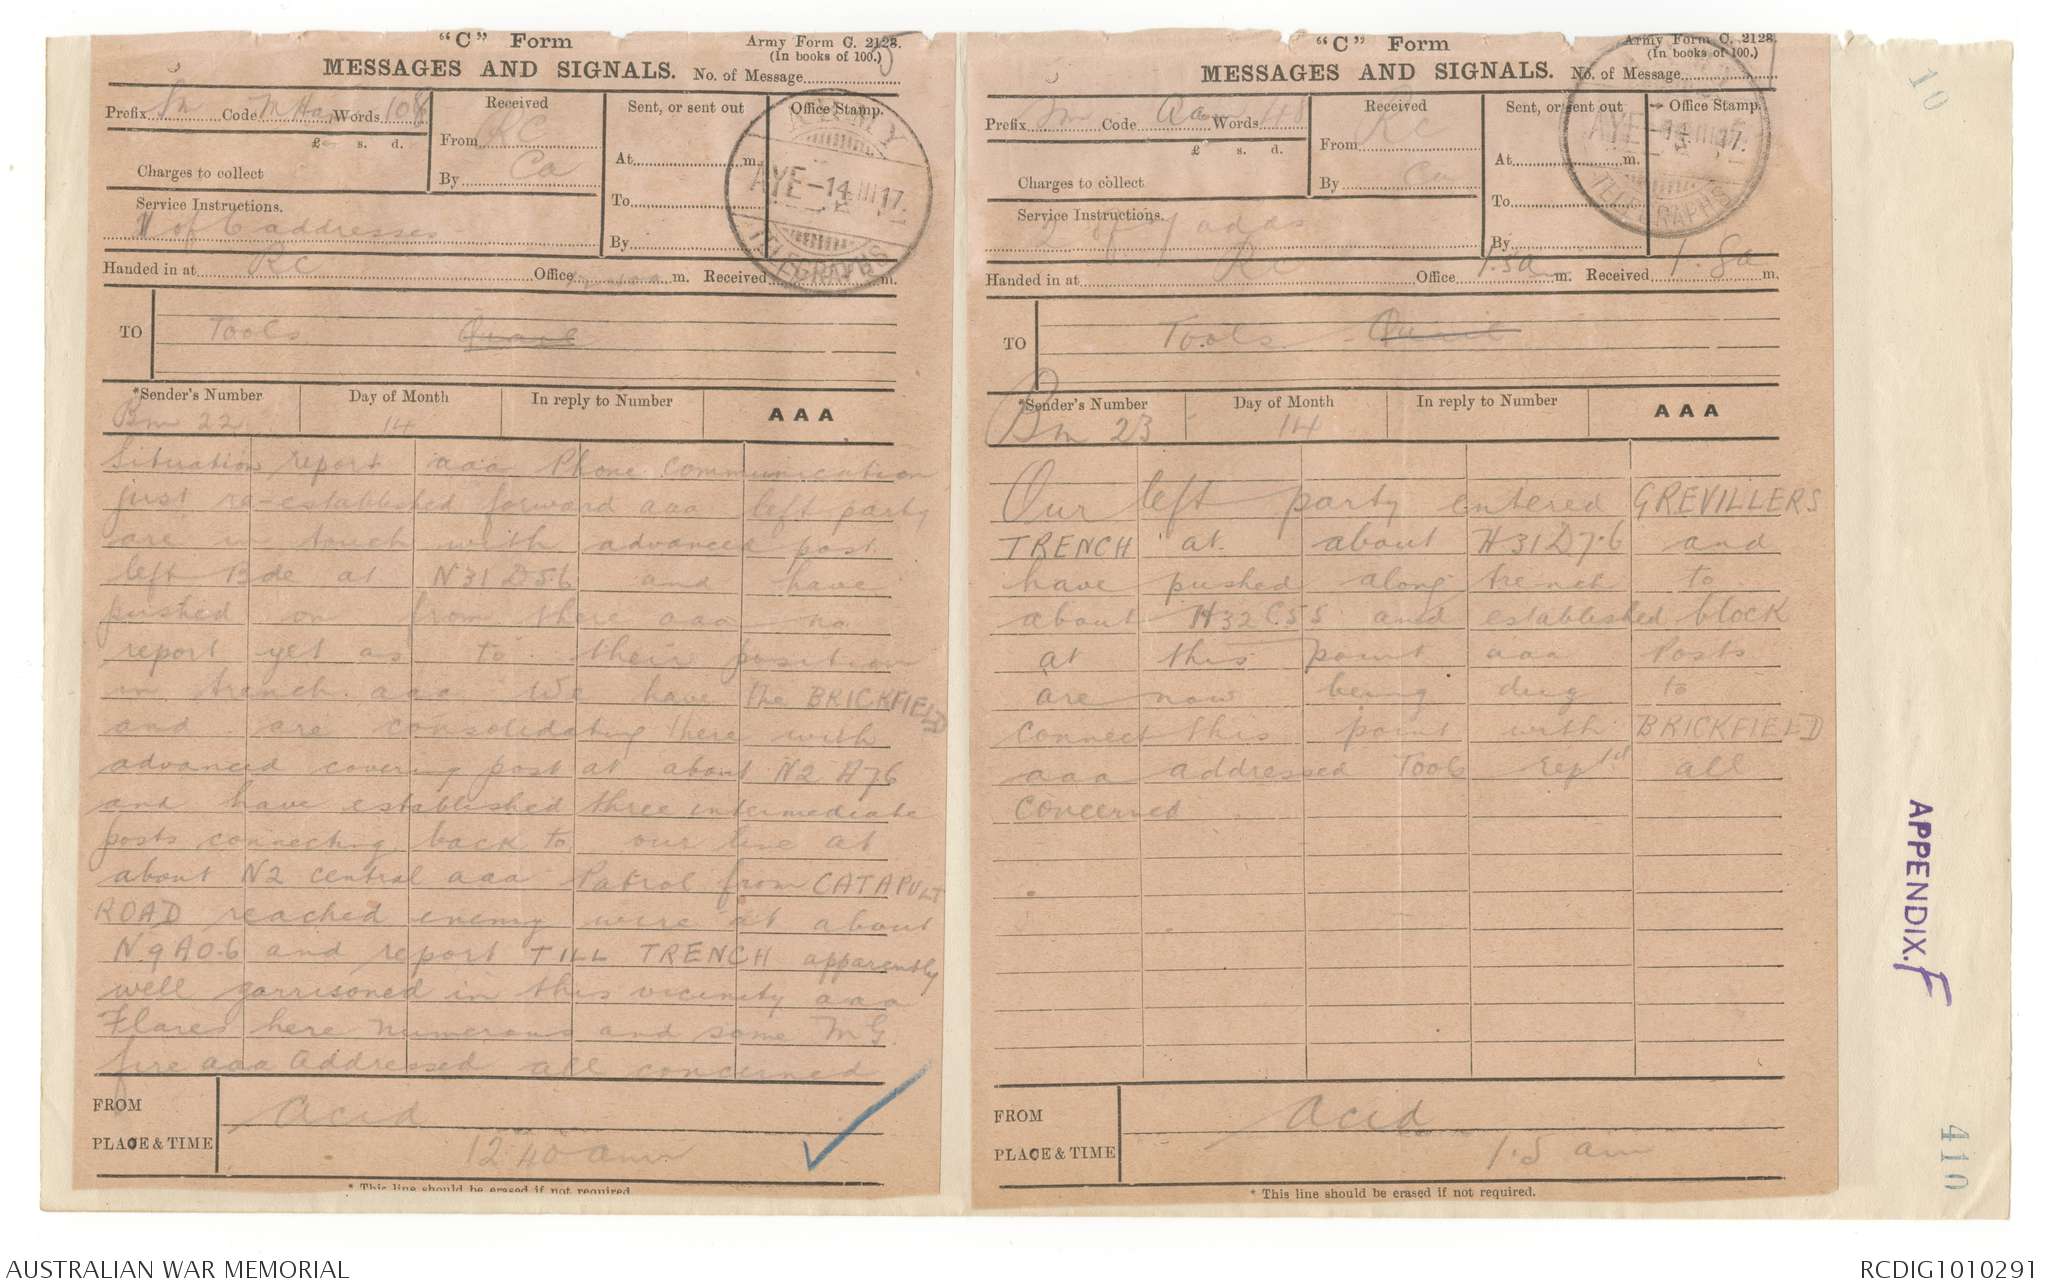 "C" Form
Army Form C. 2123.
(In books of 100.)
MESSAGES AND SIGNALS. No. of Message
Prefix Sm Code Words 108
Received
From RC
By Ca
Sent, or sent out
At m.
To
By
Office Stamp.
ARMY
AYE-14 III 17.
TELEGRAPHS
£ s. d.
Charges to collect
Service Instructions.
1 of 6 addresses
Handed in at Rc Office m. Received m.
TO Tools
*Sender's Number
Bm 22
Day of Month
14
In reply to Number
AAA
Situation report aaa Phone communication
just re-established forward aaa left party
are in touch with advanced post
left Bde at N31D56 and have
pushed on from there aaa no
report yet as to their position
in trench aaa We have the BRICKFIELD
and are consolidating there with
advanced covering post at about N2 A76
and have established three intermediate
posts connecting back to our line at
about N2 central aaa Patrol from CATAPULT
ROAD reached enemy wire at about
N9A0.6 and report TILL TRENCH apparently
well garrisoned in this vicinity aaa
Flares here numerous and some MG
fire aaa Addressed all concerned
FROM Acid
PLACE & TIME 12.40 am
* This line should be erased if not required.
"C" Form
Army Form C. 2123.
(In books of 100.)
MESSAGES AND SIGNALS. No. of Message
Prefix Sm Code Words 48
Received
From Rc
By Ca
Sent, or sent out
At m.
To
By
Office Stamp.
AYE-14 III 17.
TELEGRAPHS
£ s. d.
Charges to collect
Service Instructions.
2 of 7 adds
Handed in at Rc Office 1.5a m. Received 1.8a m.
TO Tools
*Sender's Number
Bm 23
Day of Month
14
In reply to Number
AAA
Our left party entered GREVILLERS
TRENCH at about H31D7.6 and
have pushed along trench to
about H32C.55 and established block
at this point aaa Posts
are now being dug to
connect this point with BRICKFIELD
aaa addressed Tools reptd all
concerned
FROM Acid
PLACE & TIME 1.5 am
* This line should be erased if not required.
10
APPENDIX. F
410
AUSTRALIAN WAR MEMORIAL
RCDIG1010291